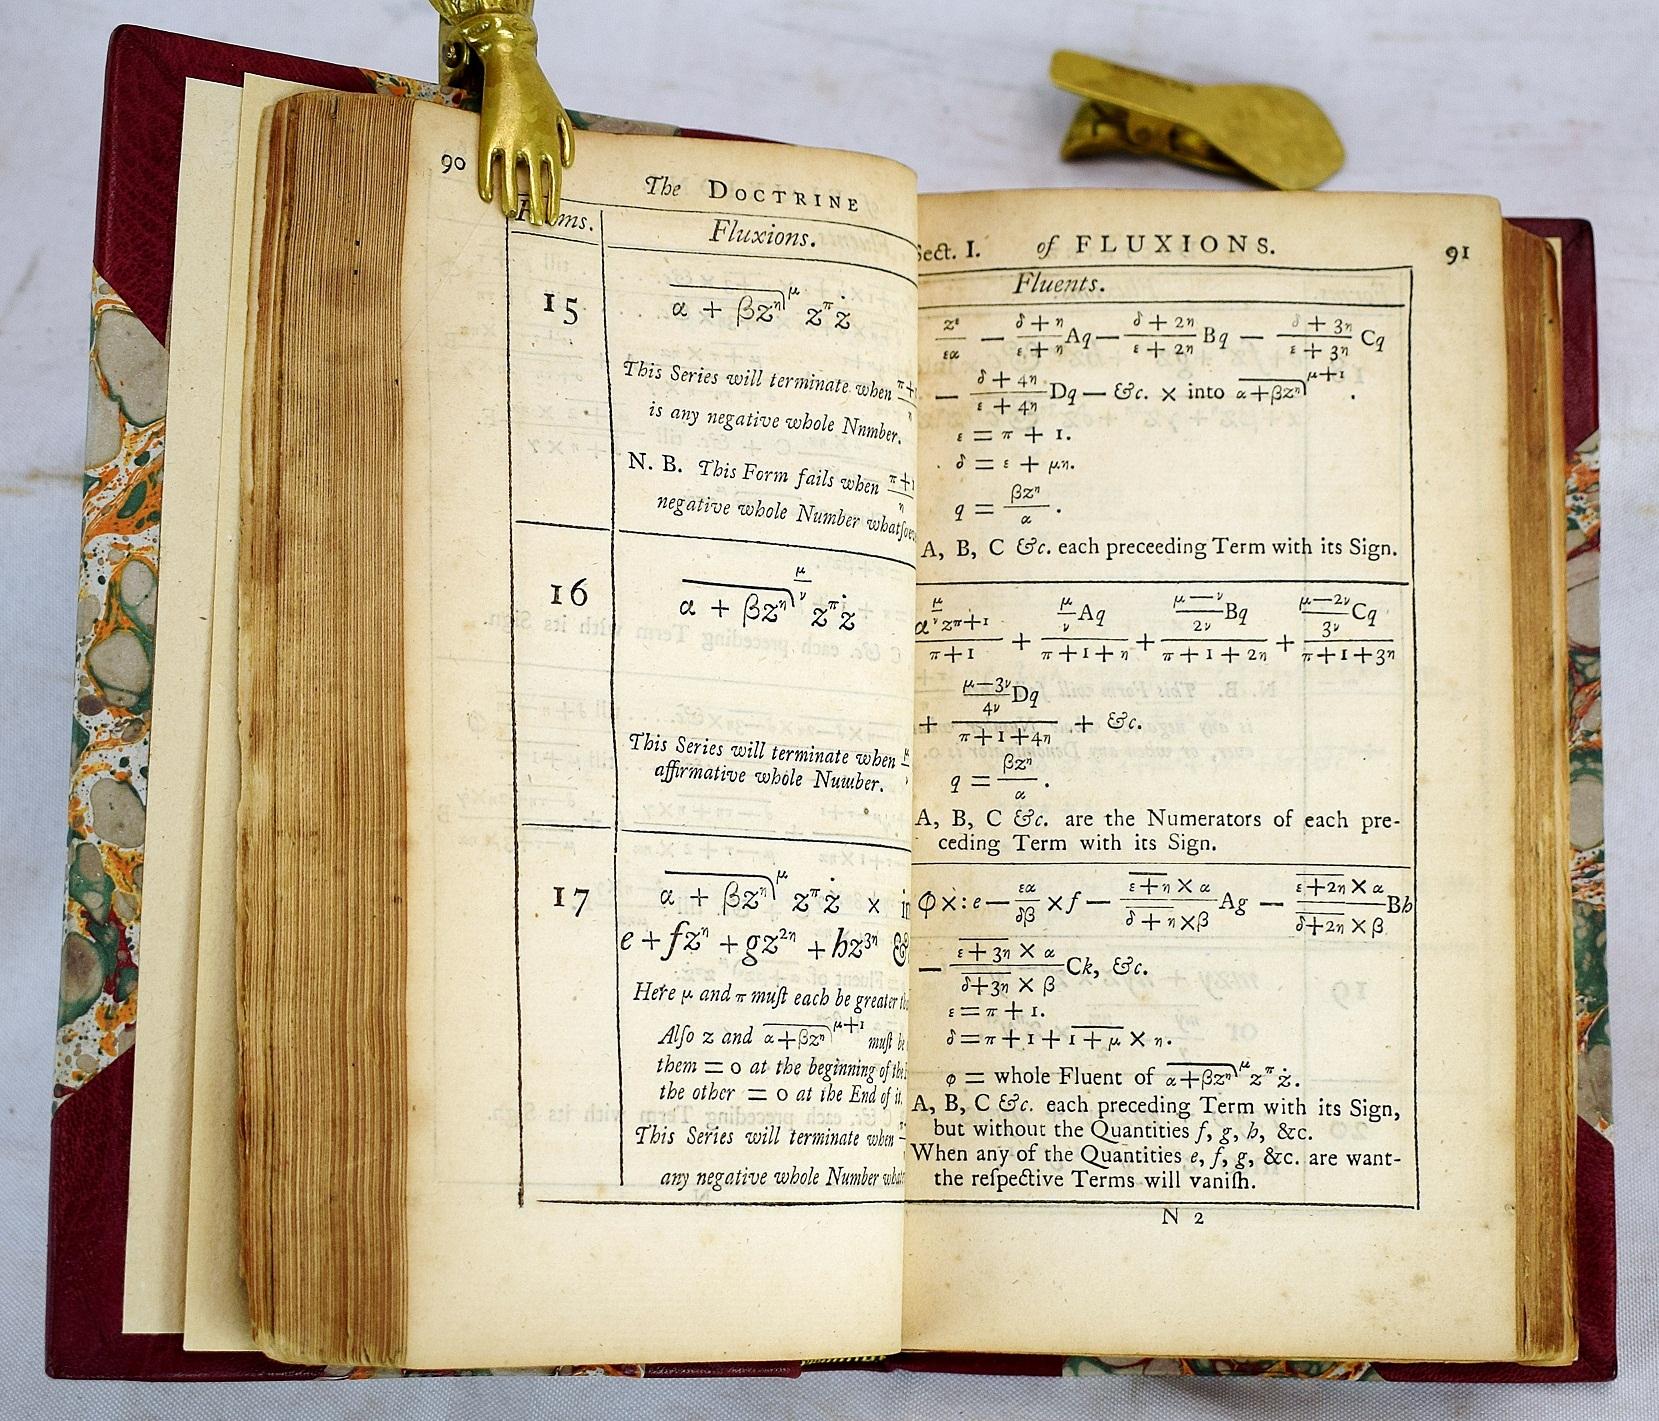 90
The DOCTRINE
Fluxions.
15
α + βzⁿ|^μ z^π ż
This Series will terminate when
is any negative whole Nnmber.
N. B. This Form fails when
negative whole Number
16
α + βzⁿ|^(μ/ν) z^π ż
This Series will terminate when
affirmative whole Number.
17
α + βzⁿ|^μ z^π ż ×
e + fzⁿ + gz²ⁿ + hz³ⁿ
Here μ and π muſt each be greater
Alſo z and α+βzⁿ|^(μ+1) muſt be
them = 0 at the beginning of the
the other = 0 at the End of it.
This Series will terminate when
any negative whole Number
Sect. I. of FLUXIONS. 91
Fluents.
z^ε/εα − (δ+η)/(ε+η) Aq − (δ+2η)/(ε+2η) Bq − (δ+3η)/(ε+3η) Cq
− (δ+4η)/(ε+4η) Dq − &c. × into α+βzⁿ|^(μ+1) .
ε = π + 1.
δ = ε + μη.
q = βzⁿ/α .
A, B, C &c. each preceeding Term with its Sign.
α^(μ/ν) z^(π+1)/(π+1) + (μ/ν Aq)/(π+1+η) + ((μ−ν)/2ν Bq)/(π+1+2η) + ((μ−2ν)/3ν Cq)/(π+1+3η)
+ ((μ−3ν)/4ν Dq)/(π+1+4η) + &c.
q = βzⁿ/α .
A, B, C &c. are the Numerators of each pre-
ceding Term with its Sign.
φ × : e − εα/δβ × f − (ε+η × α)/(δ+η × β) Ag − (ε+2η × α)/(δ+2η × β) Bh
− (ε+3η × α)/(δ+3η × β) Ck, &c.
ε = π + 1.
δ = π + 1 + 1+μ × η.
φ = whole Fluent of α+βzⁿ|^μ z^π ż.
A, B, C &c. each preceding Term with its Sign,
but without the Quantities f, g, h, &c.
When any of the Quantities e, f, g, &c. are want-
the reſpective Terms will vaniſh.
N 2